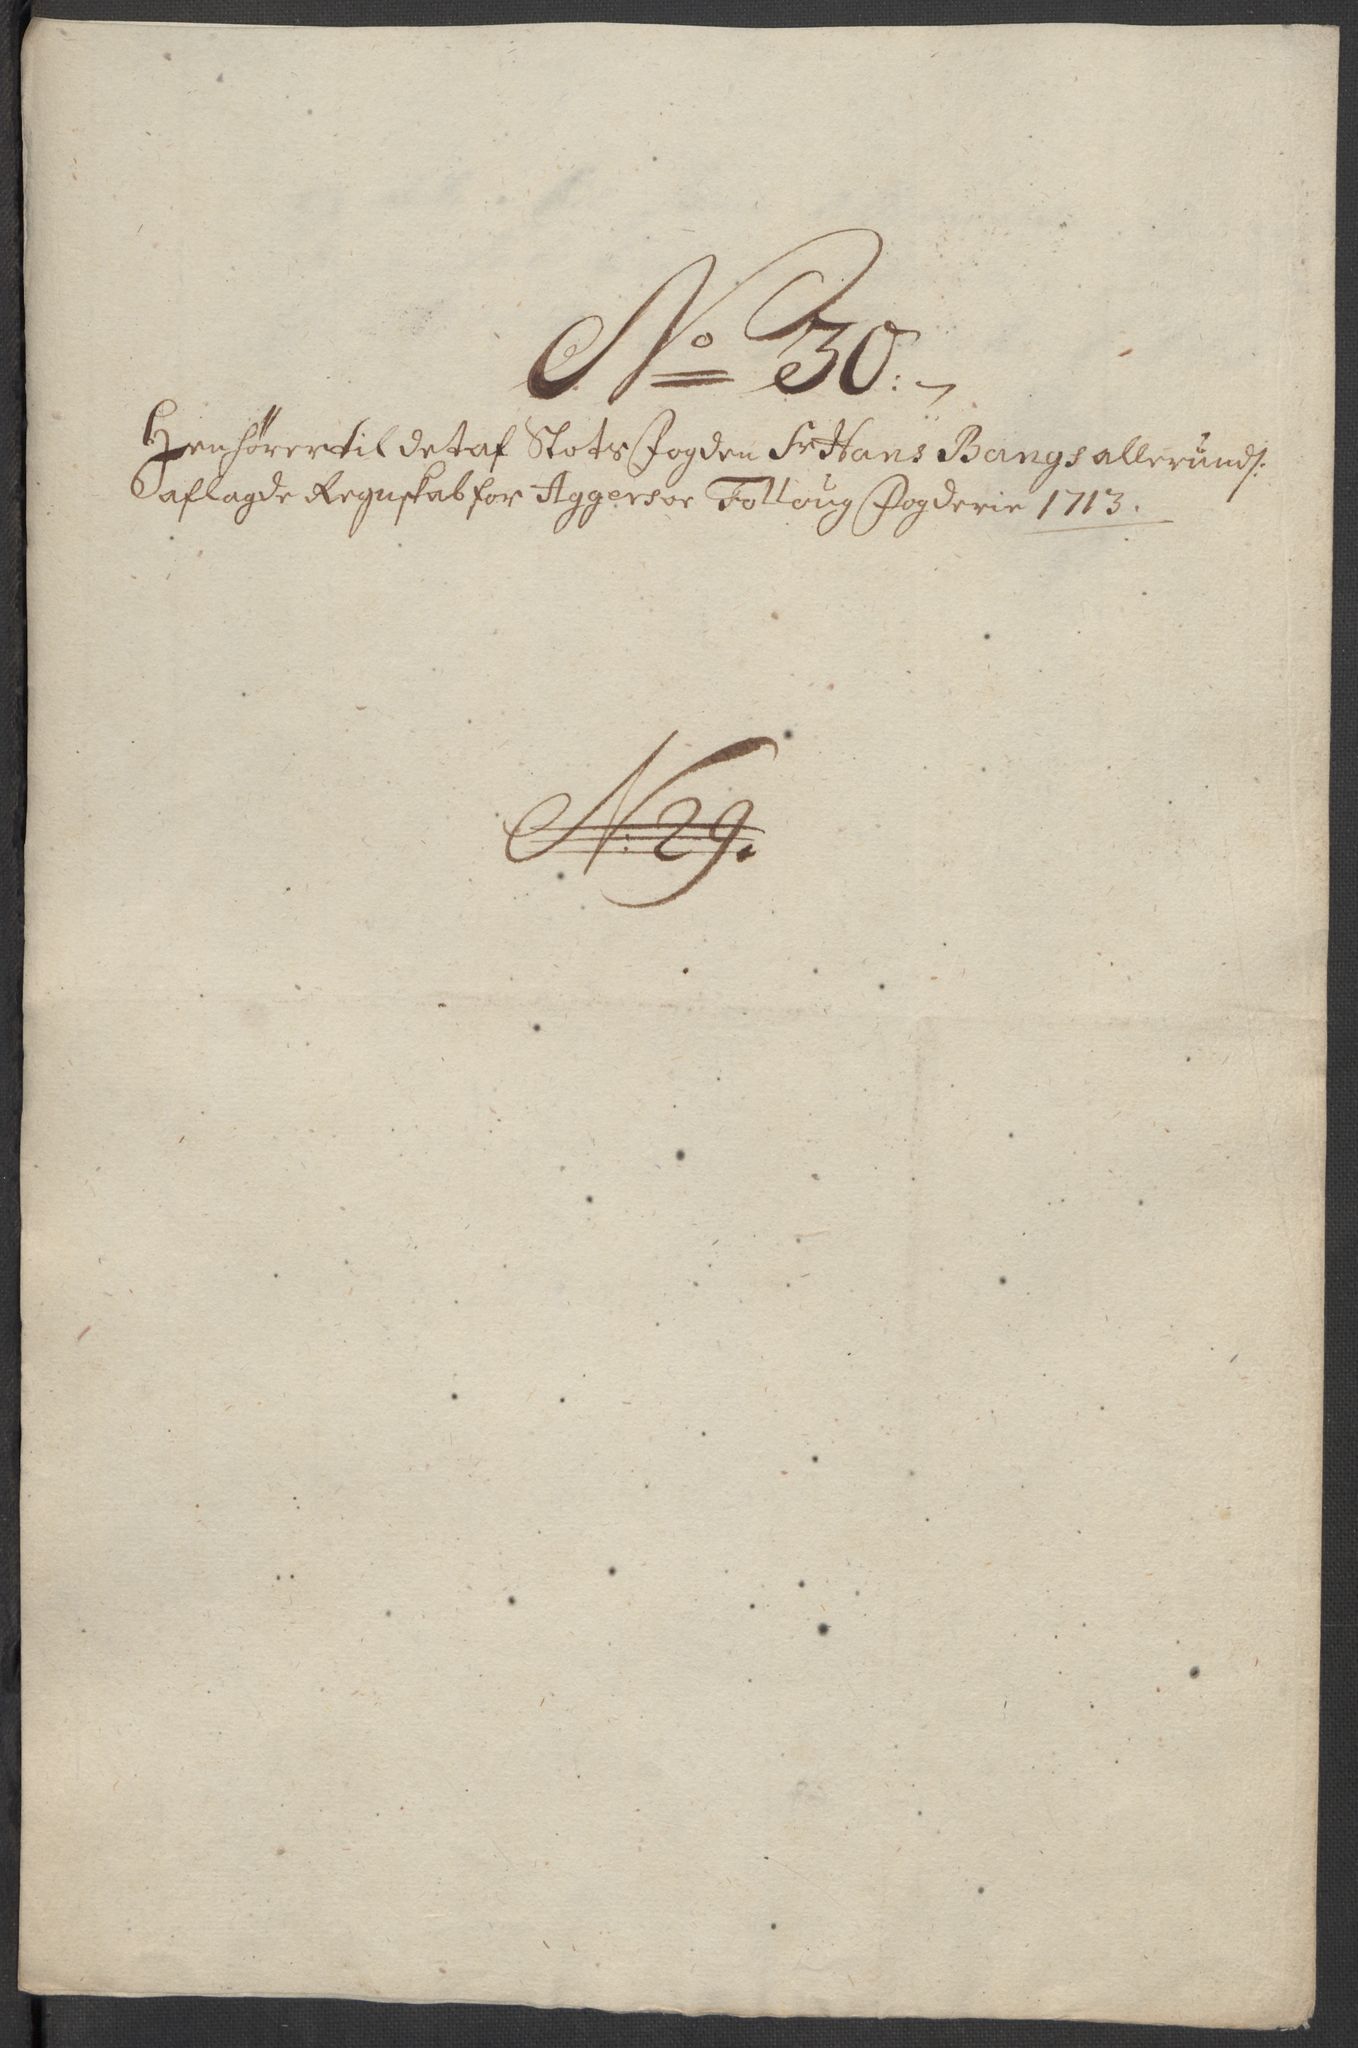 No 30:
Henhörer til det af Slots Fogden Sr Hans Bangs allerunds:
aflagde Regnskab for Aggers oc Folloug Fogderie 1713.
N: 29.